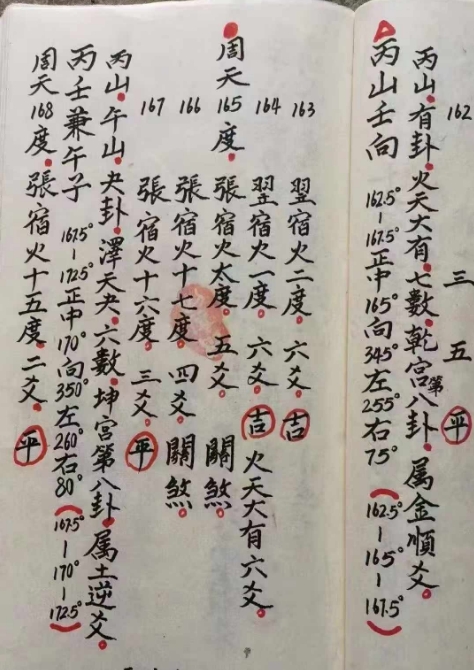 162 三 五 平
丙山.有卦.火天大有.七數.乾宮第八卦.属金順爻。
丙山壬向 162.5°-167.5°正中165°向345°左255°右75°(162.5°-165°-167.5°)
163 翌宿火二度。六爻。吉
164 翌宿火一度。六爻。吉 火天大有六爻。
周天165度.張宿火太度。五爻。關煞。
166 張宿火十七度。四爻。關煞。
167 張宿火十六度。三爻。平
丙山.午山.夬卦.澤天夬.六數.坤宮第八卦.属土逆爻。
丙壬兼午子 167.5°-172.5°正中170°向350°左260°右80°(167.5°-170°-172.5°)
周天168度.張宿火十五度.二爻。平